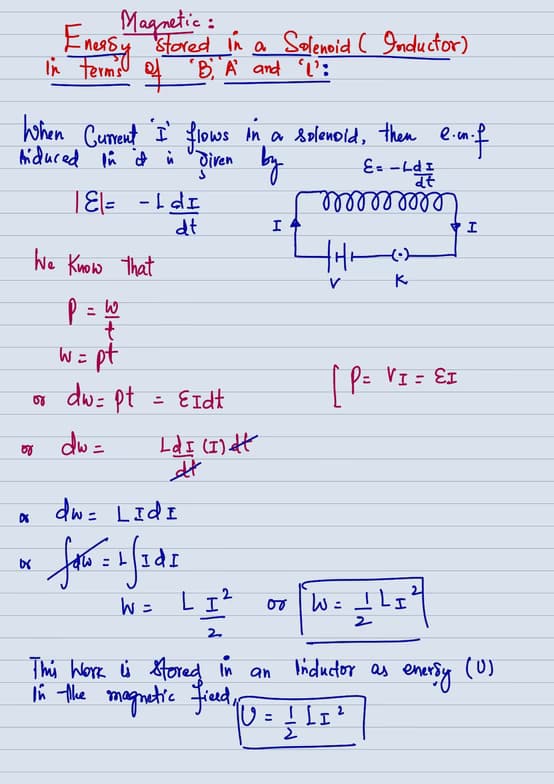 Magnetic:
Energy stored in a Solenoid ( Inductor)
in terms of 'B', 'A' and 'l':
When Current 'I' flows in a solenoid, then e.m.f
induced in it is given by
ε = -L dI/dt
|ε| = -L dI/dt
I
I
V
K
We Know that
P = W/t
W = pt
or dw = pt = εIdt
[ P = VI = εI
or dw = L dI/dt (I) dt
or dw = LIdI
or ∫dw = L∫IdI
W = L I²/2 or W = 1/2 LI²
This work is stored in an inductor as energy (U)
in the magnetic field,
U = 1/2 LI²